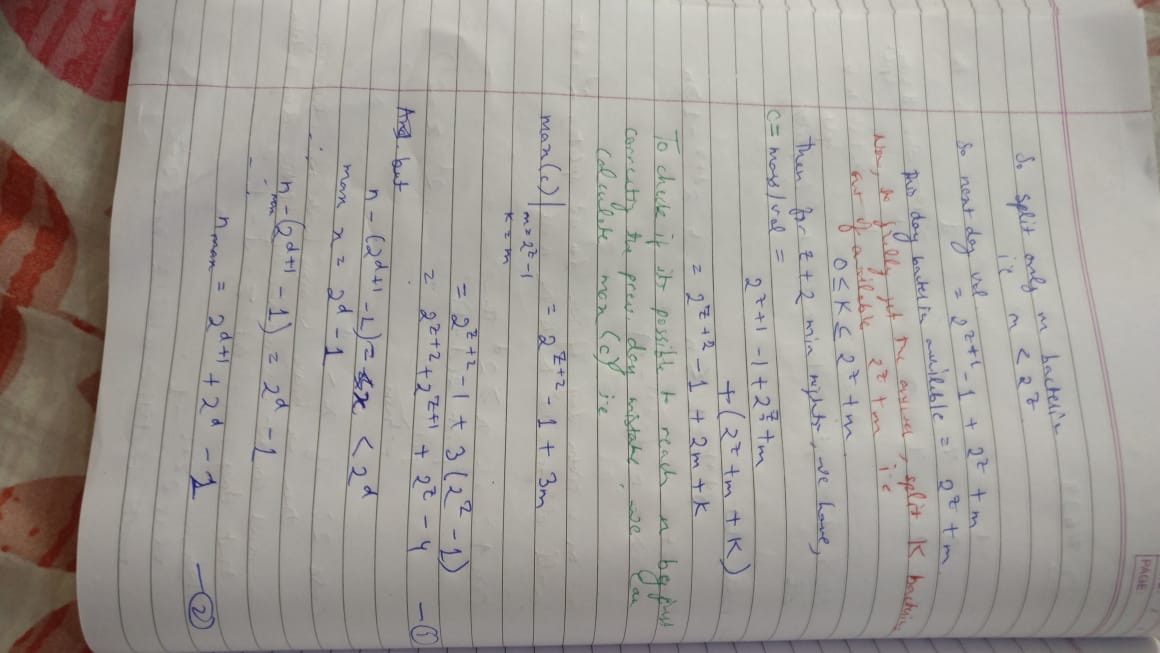 PAGE:
So split only m bacteria
ie m < 2^z
So next day vol
= 2^{z+1} - 1 + 2^z + m
this day bacteria available = 2^z + m
Now, to fully get the answer, split K bacteria
out of available 2^z + m ie
0 ≤ K ≤ 2^z + m
then for z+2 min nights, we have,
c = mass/vol =
2^{z+1} - 1 + 2^z + m
+ (2^z + m + K)
= 2^{z+2} - 1 + 2m + K
To check if its possible to reach n by just
correcting the prev. day mistake, we can
calculate max(c) ie
max(c)| = 2^{z+2} - 1 + 3m
m = 2^z - 1
K = m
= 2^{z+2} - 1 + 3(2^z - 1)
= 2^{z+2} + 2^{z+1} + 2^z - 4 — ①
but
n - (2^{d+1} - 1) = x < 2^d
max x = 2^d - 1
∴
n_{max} - (2^{d+1} - 1) = 2^d - 1
∴
n_{max} = 2^{d+1} + 2^d - 2 — ②